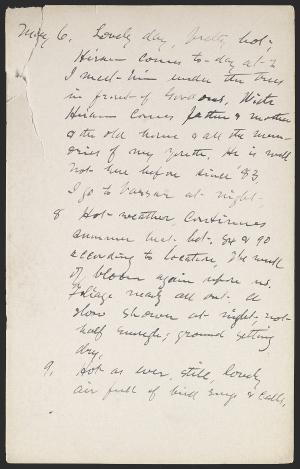 May 6. Lovely day, pretty hot;
Hiram comes to-day at 2
I meet him under the trees
in front of Gordons. With
Hiram comes father & mother
& the old home & all the mem-
ories of my youth. He is well
not here before since '83
I go to Vassar at night.
8 Hot weather continues
summer heat hot, 84 & 90
according to location. The week
of bloom again upon us.
Foliage nearly all out. A
slow shower at night - not
half enough; ground getting
dry.
9, Hot as ever, still, lovely
air full of bird songs & calls,